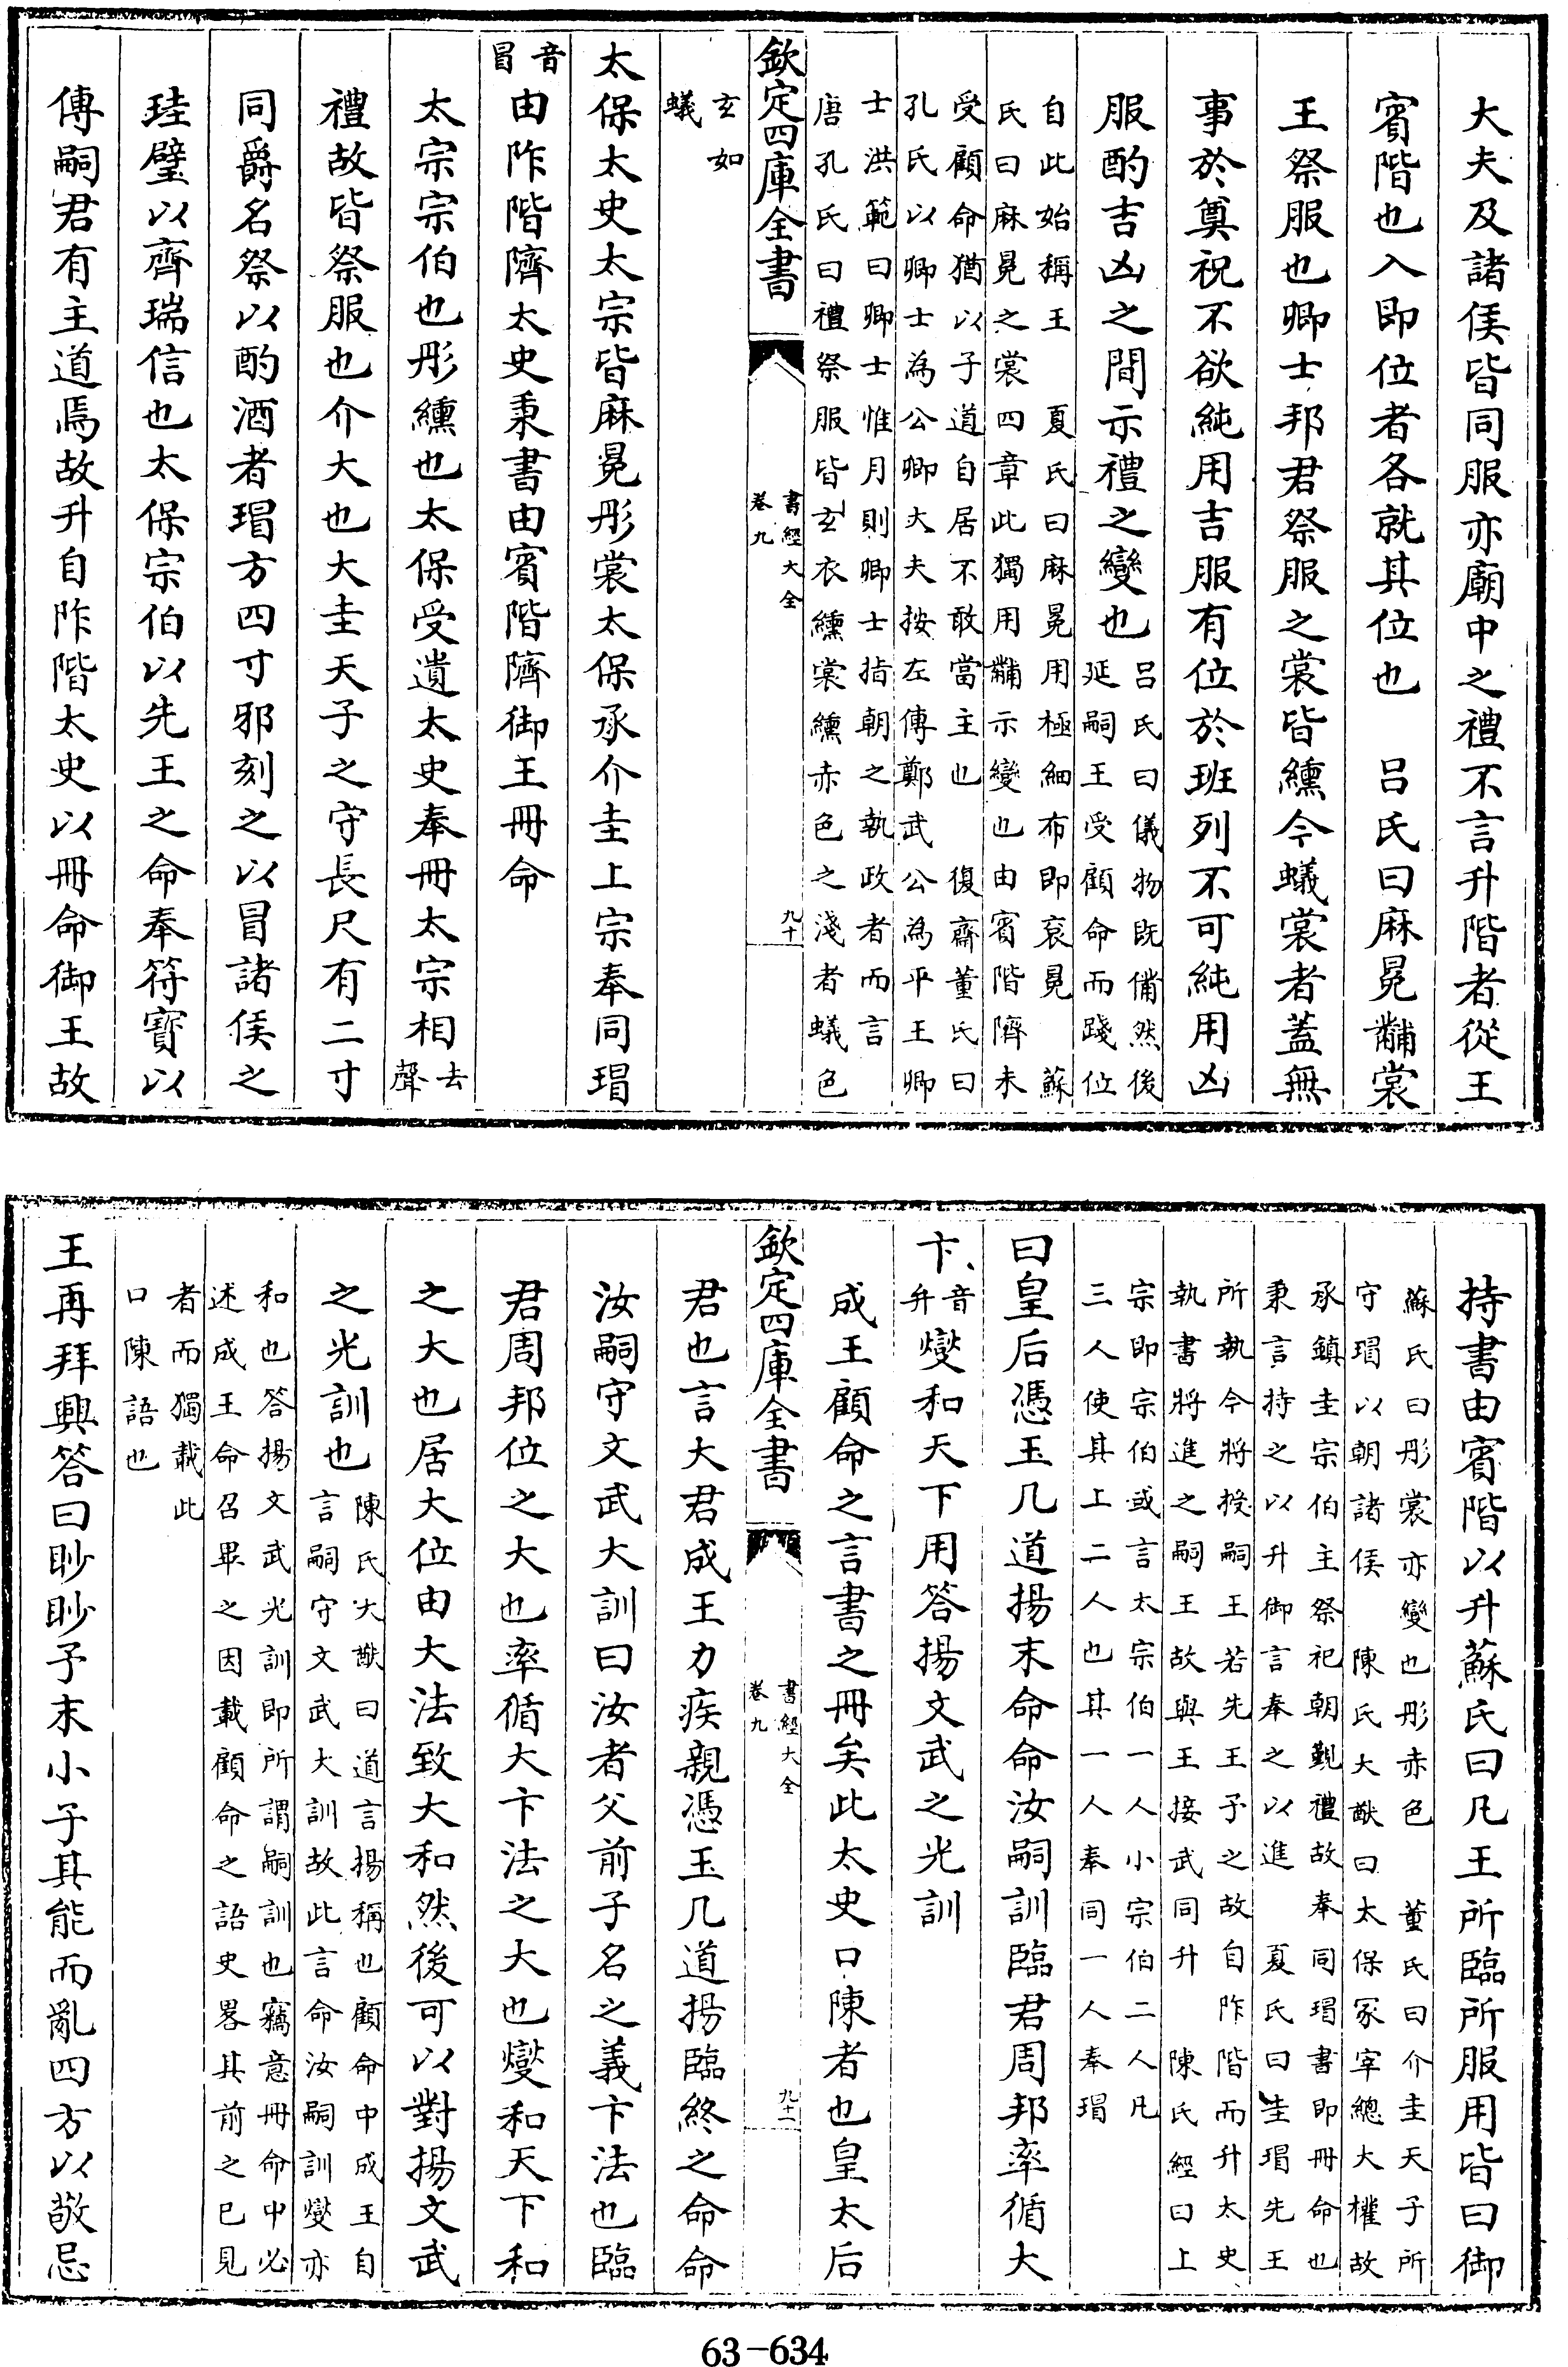 大夫及諸侯皆同服亦廟中之禮不言升階者從王
賓階也入即位者各就其位也　吕氏曰麻冕黼裳
王祭服也卿士邦君祭服之裳皆纁今蟻裳者蓋無
事於奠祝不欲純用吉服有位於班列不可純用凶
服酌吉凶之間示禮之變也吕氏曰儀物既備然後
延嗣王受顧命而踐位
自此始稱王　夏氏曰麻冕用極細布即衮冕　蘇
氏曰麻冕之裳四章此獨用黼示變也由賓階隮未
受顧命猶以子道自居不敢當主也　復齋董氏曰
孔氏以卿士為公卿大夫按左傳鄭武公為平王卿
士洪範曰卿士惟月則卿士指朝之執政者而言
唐孔氏曰禮祭服皆玄衣纁裳纁赤色之淺者蟻色
欽定四庫全書
書經大全
卷九
九十
玄如
蟻
太保太史太宗皆麻冕彤裳太保承介圭上宗奉同瑁
音
冒
由阼階隮太史秉書由賓階隮御王冊命
太宗宗伯也彤纁也太保受遺太史奉冊太宗相去
聲
禮故皆祭服也介大也大圭天子之守長尺有二寸
同爵名祭以酌酒者瑁方四寸邪刻之以冒諸侯之
珪璧以齊瑞信也太保宗伯以先王之命奉符寶以
傳嗣君有主道焉故升自阼階太史以冊命御王故
持書由賓階以升蘇氏曰凡王所臨所服用皆曰御
蘇氏曰彤裳亦變也彤赤色　董氏曰介圭天子所
守瑁以朝諸侯　陳氏大猷曰太保冢宰總大權故
承鎮圭宗伯主祭祀朝覲禮故奉同瑁書即冊命也
秉言持之以升御言奉之以進　夏氏曰圭瑁先王
所執今將授嗣王若先王予之故自阼階而升太史
執書將進之嗣王故與王接武同升　陳氏經曰上
宗即宗伯或言太宗伯一人小宗伯二人凡
三人使其上二人也其一人奉同一人奉瑁
曰皇后憑玉几道揚末命命汝嗣訓臨君周邦率循大
卞音
弁
燮和天下用答揚文武之光訓
成王顧命之言書之冊矣此太史口陳者也皇太后
欽定四庫全書
書經大全
卷九
九十一
君也言大君成王力疾親憑玉几道揚臨終之命命
汝嗣守文武大訓曰汝者父前子名之義卞法也臨
君周邦位之大也率循大卞法之大也燮和天下和
之大也居大位由大法致大和然後可以對揚文武
之光訓也陳氏大猷曰道言揚稱也顧命中成王自
言嗣守文武大訓故此言命汝嗣訓燮亦
和也答揚文武光訓即所謂嗣訓也竊意冊命中必
述成王命召畢之因載顧命之語史畧其前之已見
者而獨載此
口陳語也
王再拜興答曰眇眇予末小子其能而亂四方以敬忌
63-634